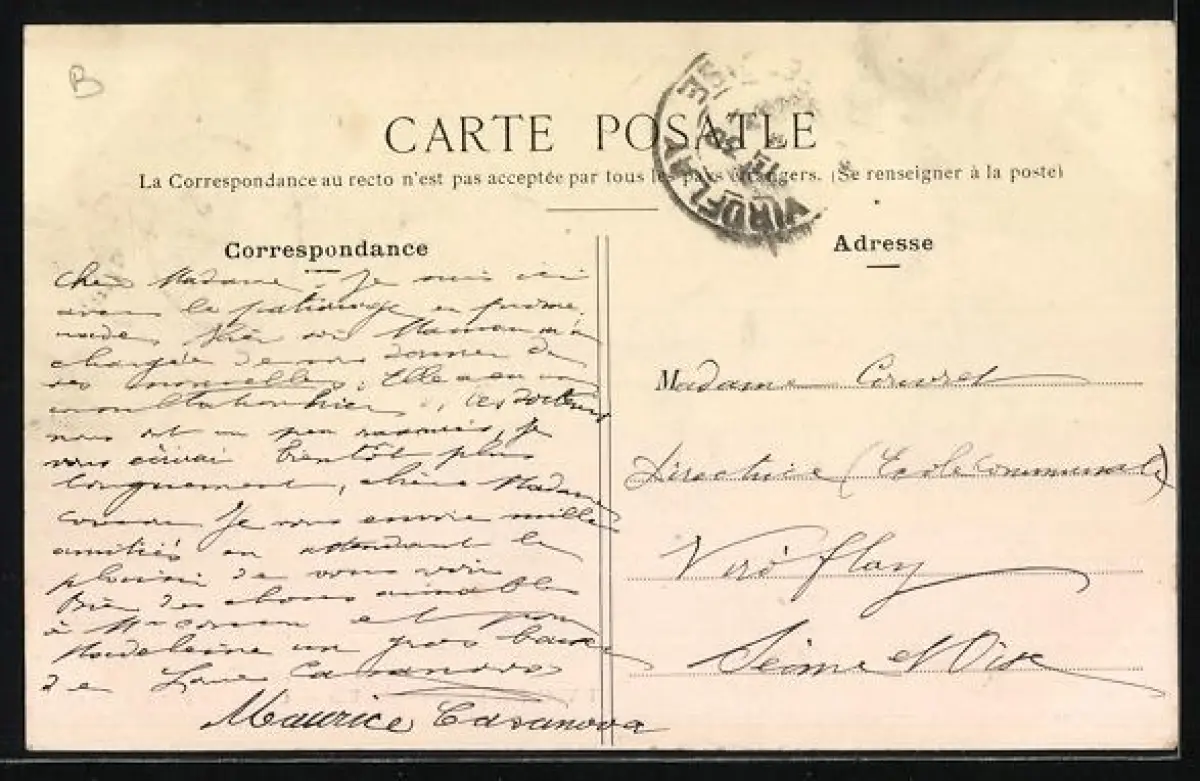 B
CARTE POSATLE
La Correspondance au recto n'est pas acceptée par tous les pays étrangers. (Se renseigner à la poste)
VIROFLAY
Correspondance
Adresse
Chère Madame, Je suis ici
avec le patronage en prome
nade. Hier soir Maman m'a
chargée de vous donner de
ses nouvelles. Elle a eu une
consultation hier, les docteurs
nous ont un peu rassurés, Je
vous écrirai bientôt plus
longuement, chère Madame
Je vous envoie mille
amitiés en attendant le
plaisir de vous voir
Bien des choses aimables
à Mr et pour
Madeleine un gros baiser
de Casanova
Maurice Casanova
Madame
Directrice (Ecole communale)
Viroflay
Seine et Oise